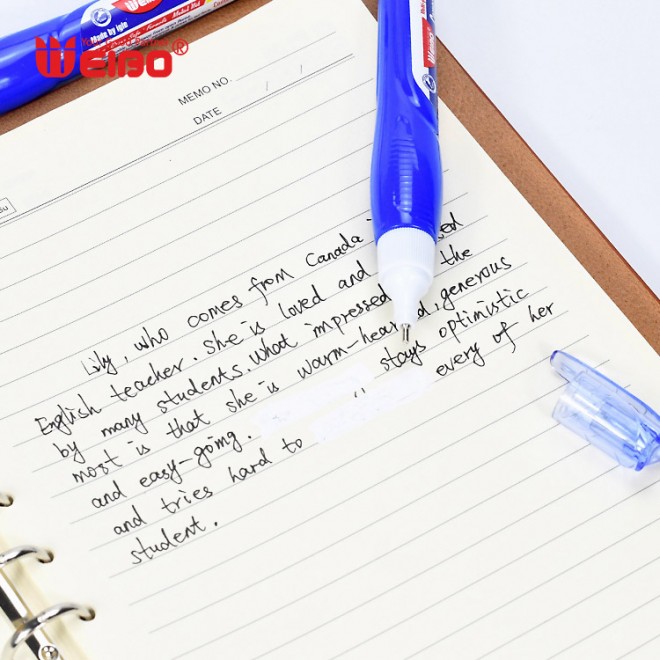 WEIBO®
MEMO NO.
DATE / /
Lily, who comes from Canada
English teacher. She is loved and
by many students. What impressed the
most is that she is warm-hearted, generous
and easy-going. stays optimistic
and tries hard to every of her
student.